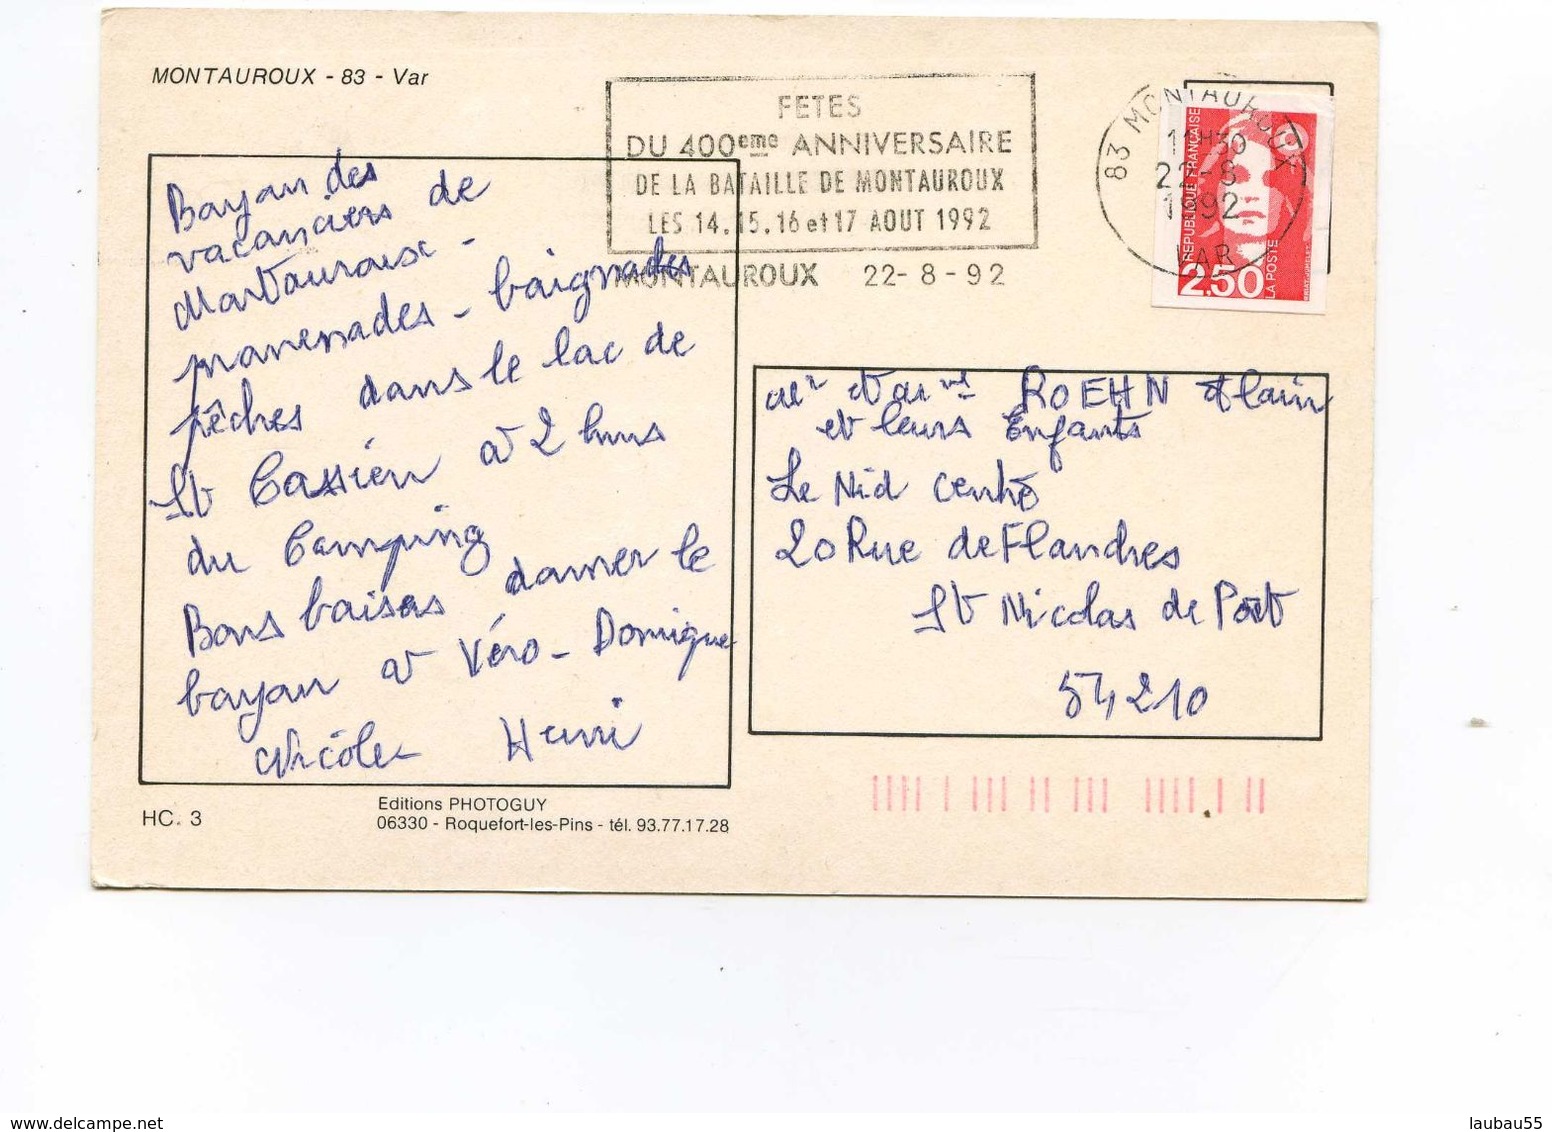 MONTAUROUX - 83 - Var
FETES
DU 400eme ANNIVERSAIRE
DE LA BATAILLE DE MONTAUROUX
LES 14.15.16 et 17 AOUT 1992
MONTAUROUX 22-8-92
83 MONTAUROUX
11H30
22-8
1992
VAR
REPUBLIQUE FRANÇAISE
2,50
LA POSTE
Bonjour des
vacanciers de
Montauroux -
promenades - baignades
pêches dans le lac de
St Cassien à 2 kms
du Camping
Bons baisers donner le
bonjour à Véro - Dominique
Nicole Henri
Mr et Mme ROEHN Alain
et leurs Enfants
Le Nid Centre
20 Rue de Flandres
St Nicolas de Port
54210
HC. 3
Editions PHOTOGUY
06330 - Roquefort-les-Pins - tél. 93.77.17.28
laubau55